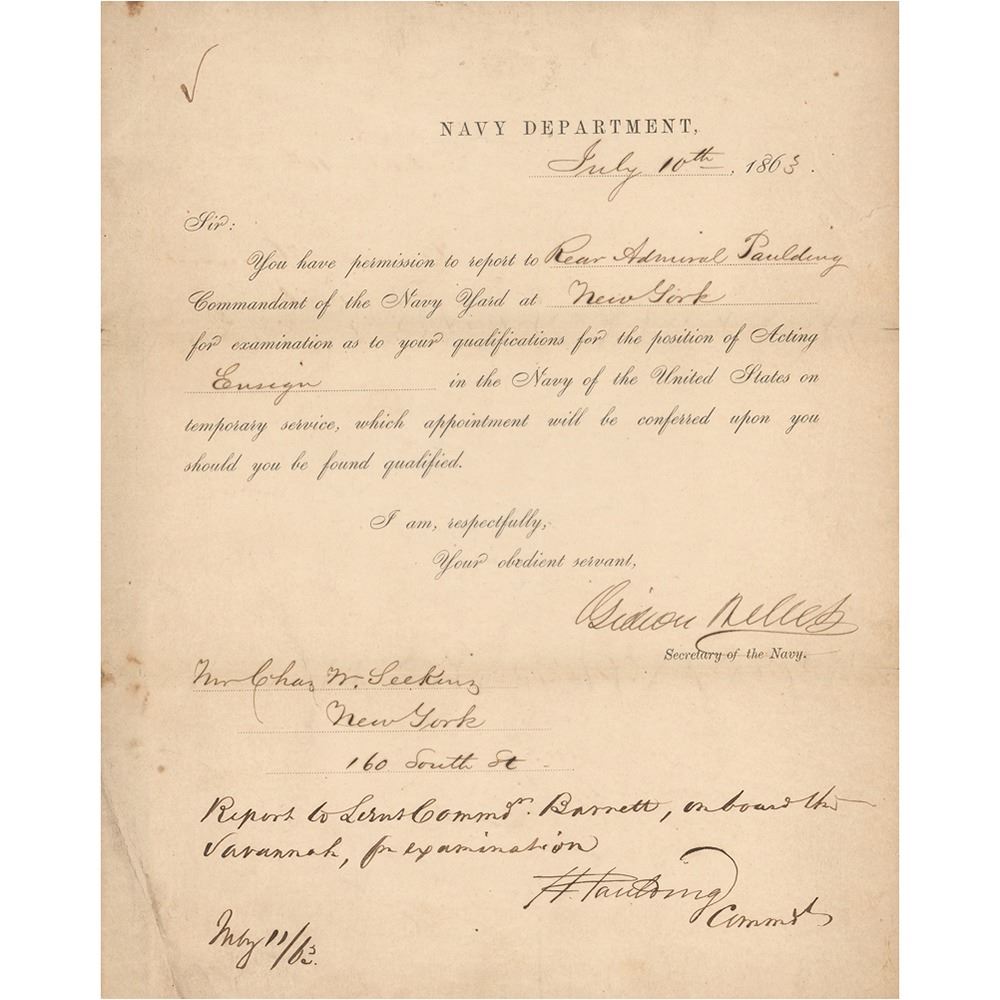 NAVY DEPARTMENT,
July 10th, 1863.
Sir:
You have permission to report to Rear Admiral Paulding
Commandant of the Navy Yard at New York
for examination as to your qualifications for the position of Acting
Ensign in the Navy of the United States on
temporary service, which appointment will be conferred upon you
should you be found qualified.
I am, respectfully,
Your obedient servant,
Gideon Welles
Secretary of the Navy.
Mr Chas W. Seekins
New York
160 South St
Report to Lieut Commdr. Barnett, on board the
Savannah, for examination
H. Paulding
Commdt
11/63.